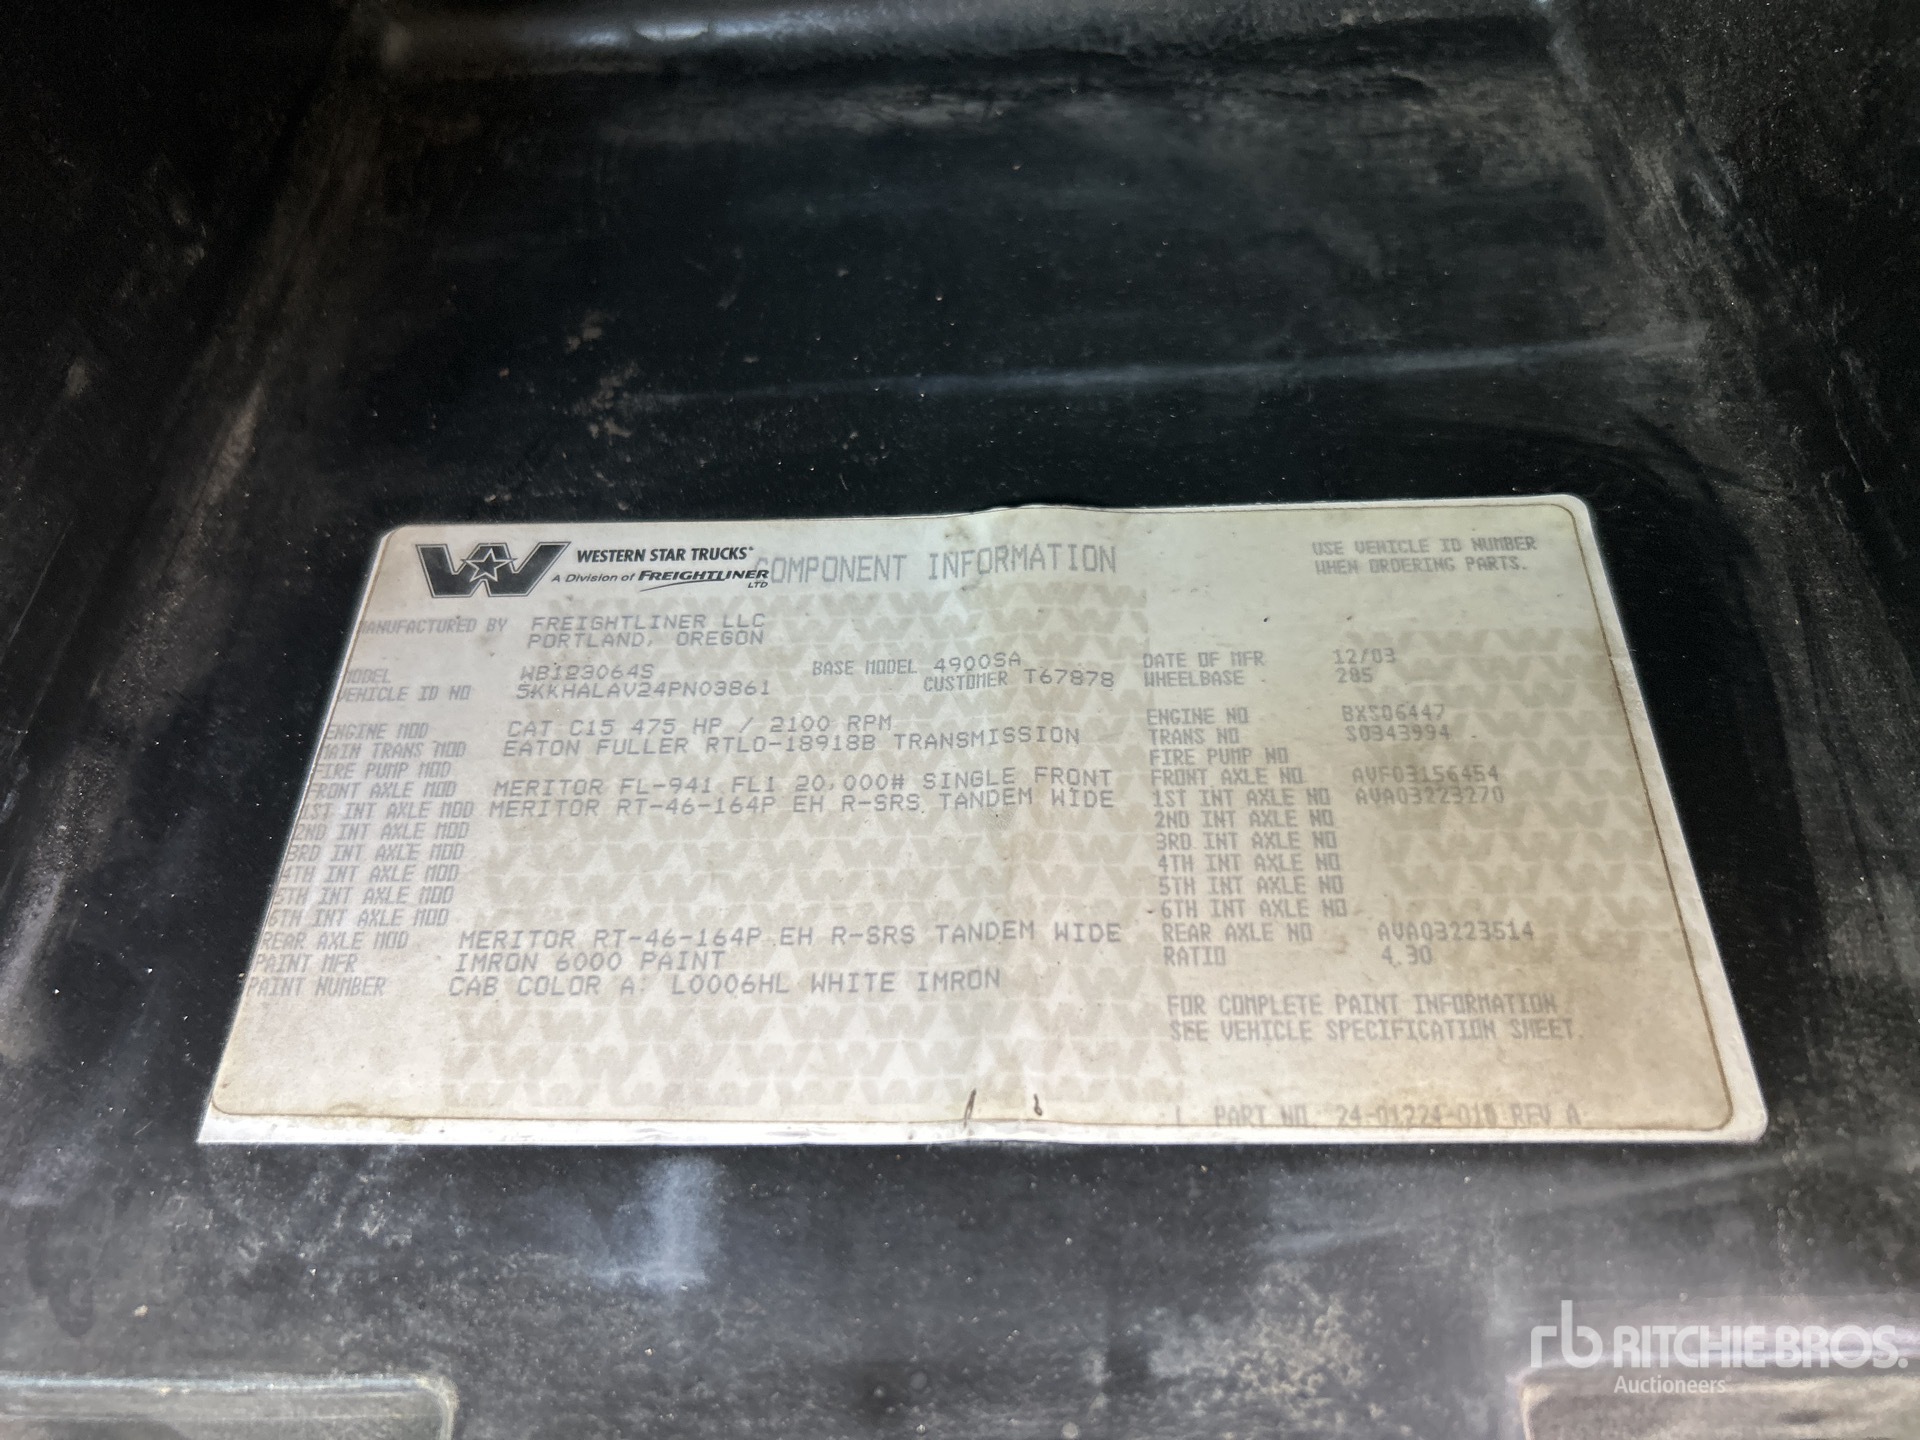 WESTERN STAR TRUCKS
A Division of FREIGHTLINER LTD
COMPONENT INFORMATION
USE VEHICLE ID NUMBER
WHEN ORDERING PARTS.
MANUFACTURED BY FREIGHTLINER LLC
PORTLAND, OREGON
MODEL WB123064S BASE MODEL 4900SA DATE OF MFR 12/03
VEHICLE ID NO 5KKHALAV24PN03861 CUSTOMER T67878 WHEELBASE 285
ENGINE MOD CAT C15 475 HP / 2100 RPM ENGINE NO BXS06447
MAIN TRANS MOD EATON FULLER RTLO-18918B TRANSMISSION TRANS NO S0343994
FIRE PUMP MOD FIRE PUMP NO
FRONT AXLE MOD MERITOR FL-941 FL1 20,000# SINGLE FRONT FRONT AXLE NO AVF03156454
1ST INT AXLE MOD MERITOR RT-46-164P EH R-SRS TANDEM WIDE 1ST INT AXLE NO AVA03223270
2ND INT AXLE MOD 2ND INT AXLE NO
3RD INT AXLE MOD 3RD INT AXLE NO
4TH INT AXLE MOD 4TH INT AXLE NO
5TH INT AXLE MOD 5TH INT AXLE NO
6TH INT AXLE MOD 6TH INT AXLE NO
REAR AXLE MOD MERITOR RT-46-164P EH R-SRS TANDEM WIDE REAR AXLE NO AVA03223514
PAINT MFR IMRON 6000 PAINT RATIO 4.30
PAINT NUMBER CAB COLOR A: L0006HL WHITE IMRON
FOR COMPLETE PAINT INFORMATION
SEE VEHICLE SPECIFICATION SHEET.
PART NO. 24-01224-010 REV A
rb RITCHIE BROS.
Auctioneers